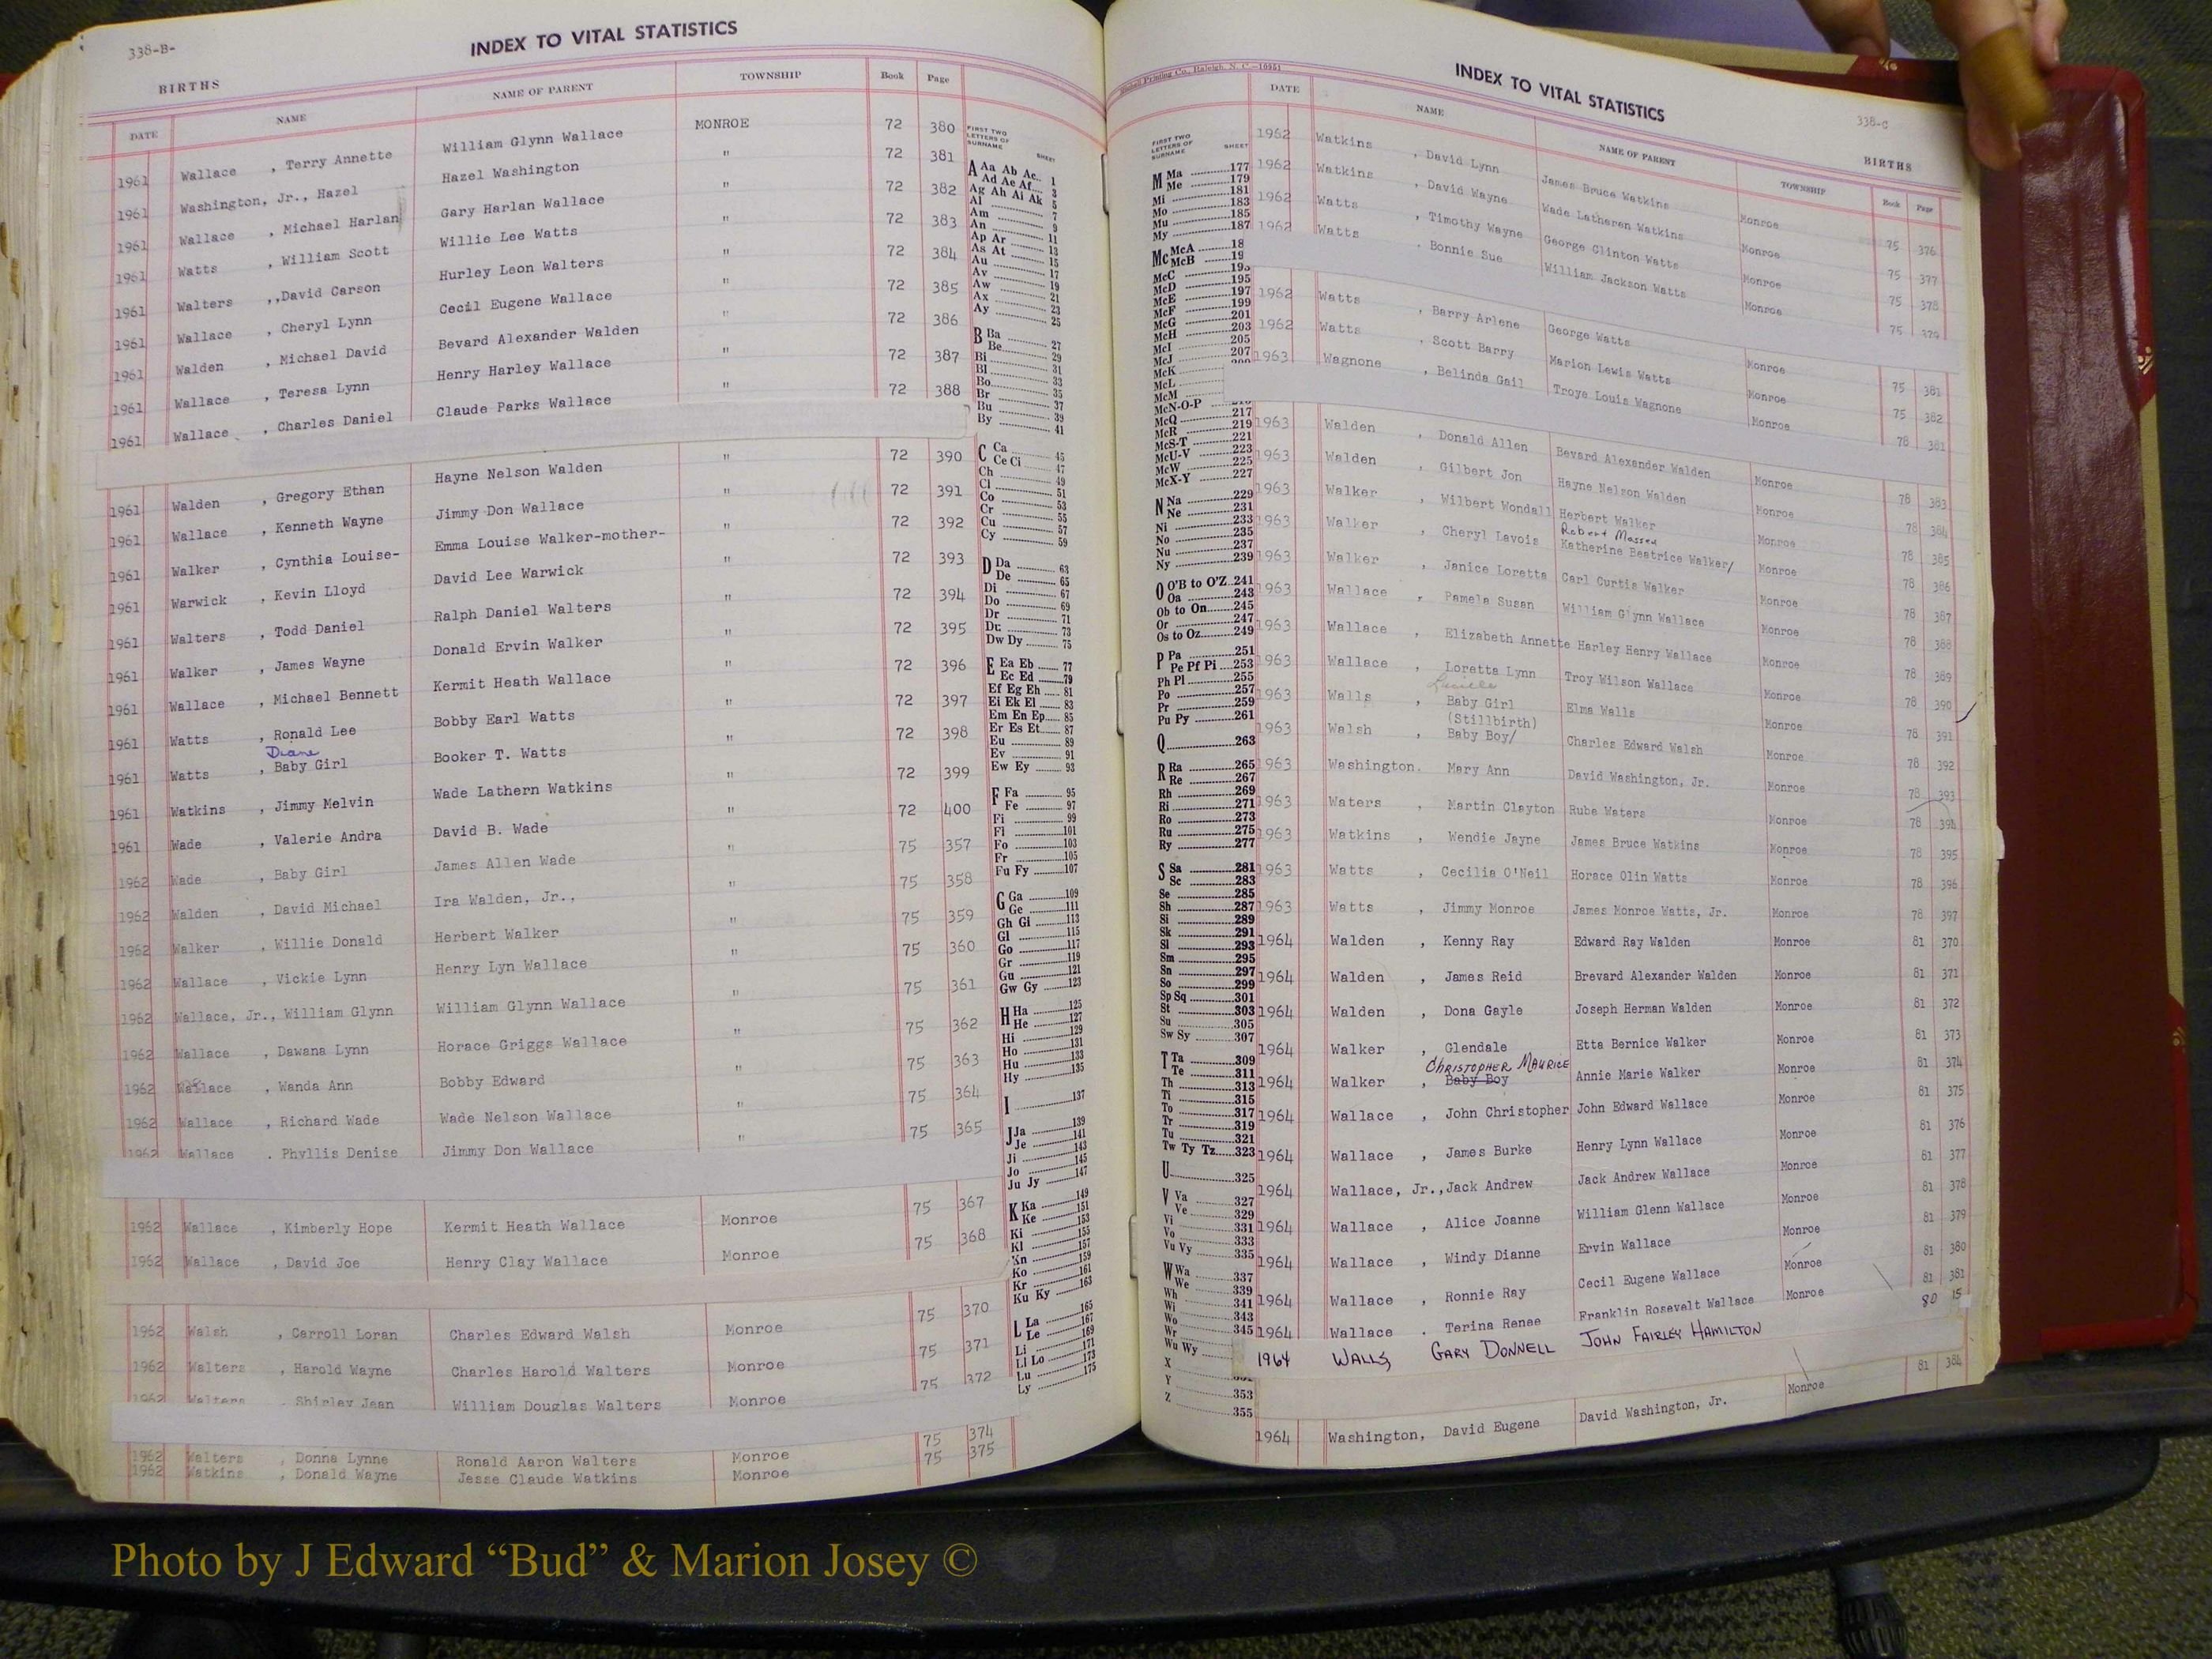 338-B-
INDEX TO VITAL STATISTICS
BIRTHS
DATE NAME NAME OF PARENT TOWNSHIP Book Page
1961 Wallace , Terry Annette William Glynn Wallace MONROE 72 380
1961 Washington, Jr., Hazel Hazel Washington " 72 381
1961 Wallace , Michael Harlan Gary Harlan Wallace " 72 382
1961 Watts , William Scott Willie Lee Watts " 72 383
1961 Walters ,,David Carson Hurley Leon Walters " 72 384
1961 Wallace , Cheryl Lynn Cecil Eugene Wallace " 72 385
1961 Walden , Michael David Bevard Alexander Walden " 72 386
1961 Wallace , Teresa Lynn Henry Harley Wallace " 72 387
1961 Wallace , Charles Daniel Claude Parks Wallace " 72 388
1961 Walden , Gregory Ethan Hayne Nelson Walden " 72 390
1961 Wallace , Kenneth Wayne Jimmy Don Wallace " 72 391
1961 Walker , Cynthia Louise- Emma Louise Walker-mother- " 72 392
1961 Warwick , Kevin Lloyd David Lee Warwick " 72 393
1961 Walters , Todd Daniel Ralph Daniel Walters " 72 394
1961 Walker , James Wayne Donald Ervin Walker " 72 395
1961 Wallace , Michael Bennett Kermit Heath Wallace " 72 396
1961 Watts , Ronald Lee Bobby Earl Watts " 72 397
Diane
1961 Watts , Baby Girl Booker T. Watts " 72 398
1961 Watkins , Jimmy Melvin Wade Lathern Watkins " 72 399
1961 Wade , Valerie Andra David B. Wade " 72 400
1962 Wade , Baby Girl James Allen Wade " 75 357
1962 Walden , David Michael Ira Walden, Jr., " 75 358
1962 Walker , Willie Donald Herbert Walker " 75 359
1962 Wallace , Vickie Lynn Henry Lyn Wallace " 75 360
1962 Wallace, Jr., William Glynn William Glynn Wallace " 75 361
1962 Wallace , Dawana Lynn Horace Griggs Wallace " 75 362
1962 Wallace , Wanda Ann Bobby Edward " 75 363
1962 Wallace , Richard Wade Wade Nelson Wallace " 75 364
1962 Wallace . Phyllis Denise Jimmy Don Wallace " 75 365
1962 Wallace , Kimberly Hope Kermit Heath Wallace Monroe 75 367
1962 Wallace , David Joe Henry Clay Wallace Monroe 75 368
1962 Walsh , Carroll Loran Charles Edward Walsh Monroe 75 370
1962 Walters , Harold Wayne Charles Harold Walters Monroe 75 371
1962 Walters . Shirley Jean William Douglas Walters Monroe 75 372
1962 Walters , Donna Lynne Ronald Aaron Walters Monroe 75 374
1962 Watkins , Donald Wayne Jesse Claude Watkins Monroe 75 375
FIRST TWO LETTERS OF SURNAME SHEET
A Aa Ab Ac.. 1
Ad Ae Af.... 3
Ag Ah Ai Ak 5
Al 7
Am 9
An 11
Ap Ar 13
As At 15
Au 17
Av 19
Aw 21
Ax 23
Ay 25
B Ba 27
Be 29
Bi 31
Bl 33
Bo 35
Br 37
Bu 39
By 41
C Ca 45
Ce Ci 47
Ch 49
Cl 51
Co 53
Cr 55
Cu 57
Cy 59
D Da 63
De 65
Di 67
Do 69
Dr 71
Du 73
Dw Dy 75
E Ea Eb 77
Ec Ed 79
Ef Eg Eh 81
Ei Ek El 83
Em En Ep 85
Er Es Et 87
Eu 89
Ev 91
Ew Ey 93
F Fa 95
Fe 97
Fi 99
Fl 101
Fo 103
Fr 105
Fu Fy 107
G Ga 109
Ge 111
Gh Gi 113
Gl 115
Go 117
Gr 119
Gu 121
Gw Gy 123
H Ha 125
He 127
Hi 129
Ho 131
Hu 133
Hy 135
I 137
J Ja 139
Je 141
Ji 143
Jo 145
Ju Jy 147
K Ka 149
Ke 151
Ki 153
Kl 155
Kn 157
Ko 159
Kr 161
Ku Ky 163
L La 165
Le 167
Li 169
Ll Lo 171
Lu 173
Ly 175
Mitchell Printing Co., Raleigh, N. C.—10951
INDEX TO VITAL STATISTICS
338-C
BIRTHS
FIRST TWO LETTERS OF SURNAME SHEET
M Ma 177
Me 179
Mi 181
Mo 183
Mu 185
My 187
Mc McA 18
McB 19
McC 193
McD 195
McE 197
McF 199
McG 201
McH 203
McI 205
McJ 207
McK
McL
McM
McN-O-P
McQ 217
McR 219
McS-T 221
McU-V 223
McW 225
McX-Y 227
N Na 229
Ne 231
Ni 233
No 235
Nu 237
Ny 239
O O'B to O'Z 241
Oa 243
Ob to On 245
Or 247
Os to Oz 249
P Pa 251
Pe Pf Pi 253
Ph Pl 255
Po 257
Pr 259
Pu Py 261
Q 263
R Ra 265
Re 267
Rh 269
Ri 271
Ro 273
Ru 275
Ry 277
S Sa 281
Sc 283
Se 285
Sh 287
Si 289
Sk 291
Sl 293
Sm 295
Sn 297
So 299
Sp Sq 301
St 303
Su 305
Sw Sy 307
T Ta 309
Te 311
Th 313
Ti 315
To 317
Tr 319
Tu 321
Tw Ty Tz 323
U 325
V Va 327
Ve 329
Vi 331
Vo 333
Vu Vy 335
W Wa 337
We 339
Wh 341
Wi 343
Wo 345
Wr
Wu Wy
X
Y 353
Z 355
DATE NAME NAME OF PARENT TOWNSHIP Book Page
1962 Watkins , David Lynn James Bruce Watkins Monroe 75 376
1962 Watkins , David Wayne Wade Latheren Watkins Monroe 75 377
1962 Watts , Timothy Wayne George Clinton Watts Monroe 75 378
1962 Watts . Bonnie Sue William Jackson Watts Monroe 75 379
1962 Watts , Barry Arlene George Watts Monroe 75 381
1962 Watts . Scott Barry Marion Lewis Watts Monroe 75 382
1963 Wagnone , Belinda Gail Troye Louis Wagnone Monroe 78 381
1963 Walden , Donald Allen Bevard Alexander Walden Monroe 78 383
1963 Walden , Gilbert Jon Hayne Nelson Walden Monroe 78 384
1963 Walker , Wilbert Wondall Herbert Walker Monroe 78 385
Robert Massey
1963 Walker , Cheryl Lavois Katherine Beatrice Walker/ Monroe 78 386
1963 Walker , Janice Loretta Carl Curtis Walker Monroe 78 387
1963 Wallace , Pamela Susan William Glynn Wallace Monroe 78 388
1963 Wallace , Elizabeth Annette Harley Henry Wallace Monroe 78 389
1963 Wallace , Loretta Lynn Troy Wilson Wallace Monroe 78 390
Lucille
1963 Walls , Baby Girl Elma Walls Monroe 78 391
(Stillbirth)
1963 Walsh , Baby Boy/ Charles Edward Walsh Monroe 78 392
1963 Washington. Mary Ann David Washington, Jr. Monroe 78 393
1963 Waters , Martin Clayton Rube Waters Monroe 78 394
1963 Watkins , Wendie Jayne James Bruce Watkins Monroe 78 395
1963 Watts , Cecilia O'Neil Horace Olin Watts Monroe 78 396
1963 Watts , Jimmy Monroe James Monroe Watts, Jr. Monroe 78 397
1964 Walden , Kenny Ray Edward Ray Walden Monroe 81 370
1964 Walden , James Reid Brevard Alexander Walden Monroe 81 371
1964 Walden , Dona Gayle Joseph Herman Walden Monroe 81 372
1964 Walker , Glendale Etta Bernice Walker Monroe 81 373
CHRISTOPHER MAURICE
1964 Walker , Baby Boy Annie Marie Walker Monroe 81 374
1964 Wallace , John Christopher John Edward Wallace Monroe 81 375
1964 Wallace , James Burke Henry Lynn Wallace Monroe 81 376
1964 Wallace, Jr.,Jack Andrew Jack Andrew Wallace Monroe 81 377
1964 Wallace , Alice Joanne William Glenn Wallace Monroe 81 378
1964 Wallace , Windy Dianne Ervin Wallace Monroe 81 379
1964 Wallace , Ronnie Ray Cecil Eugene Wallace Monroe 81 380
1964 Wallace . Terina Renee Franklin Rosevelt Wallace Monroe 81 381
1964 WALLS, GARY DONNELL JOHN FAIRLEY HAMILTON 80 15
1964 Washington, David Eugene David Washington, Jr. Monroe 81 384
Photo by J Edward “Bud” & Marion Josey ©